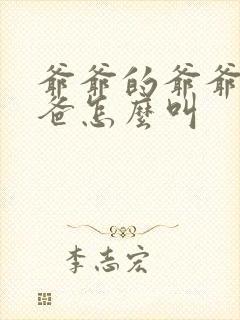 爺爺的爺爺
爸怎麼叫
李志宏